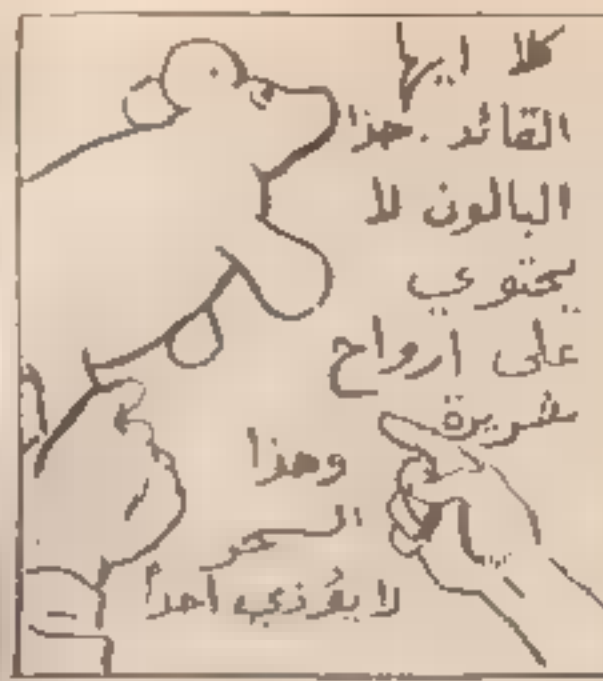 كلا ايها
القائد. هذا
البالون لا
يحتوي
على ارواح
شريرة
وهذا
السحر
لا يؤذي احداً